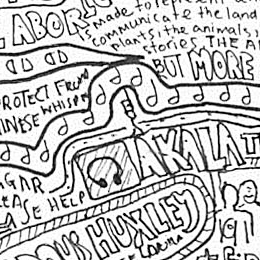 ABOR
is made to represent an
communicate the land
plants, the animals,
stories THE A
BUT MORE
PROTECT FROM
CHINESE WHISPE
AKALAT
GAR
EASE HELP
DOUS HUXLEY